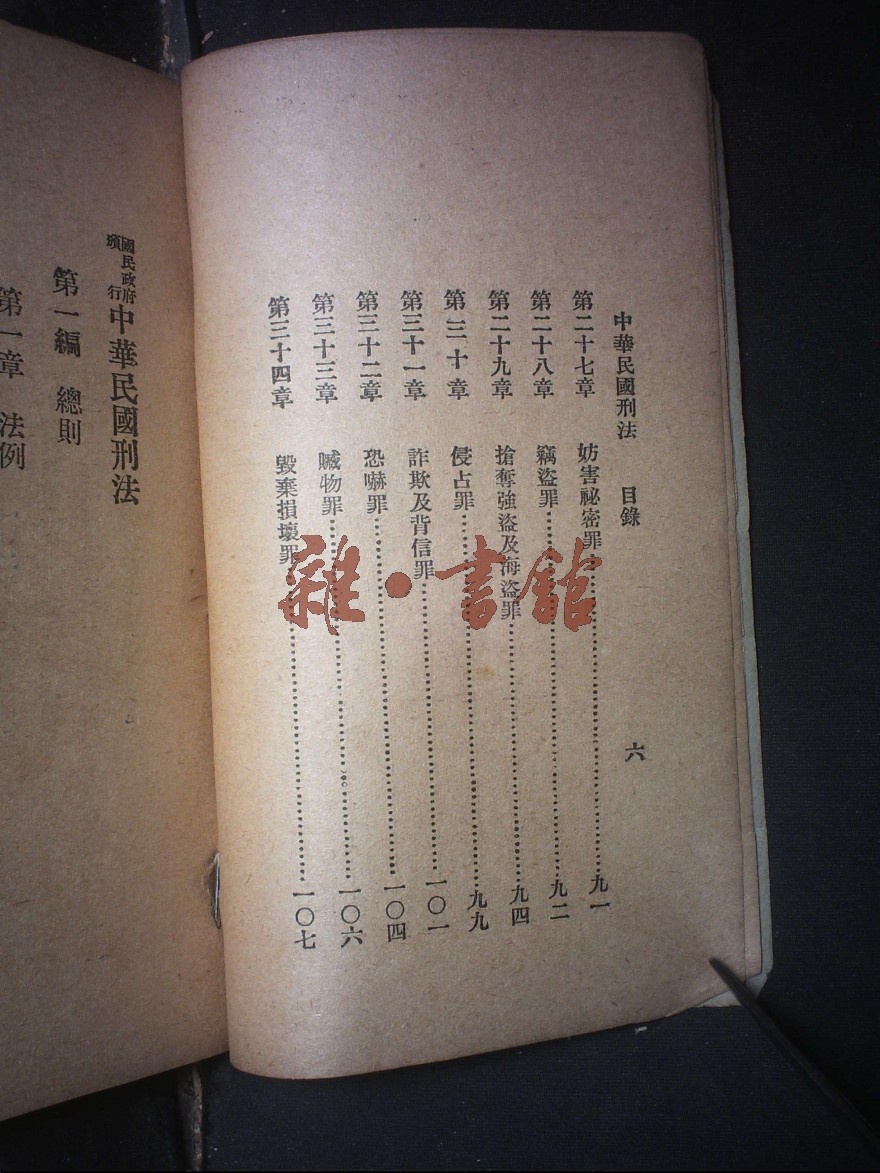 中華民國刑法 目錄 六
第二十七章 妨害祕密罪……九一
第二十八章 竊盜罪……九二
第二十九章 搶奪強盜及海盜罪……九四
第三十章 侵占罪……九九
第三十一章 詐欺及背信罪……一〇一
第三十二章 恐嚇罪……一〇四
第三十三章 贓物罪……一〇六
第三十四章 毀棄損壞罪……一〇七
國民政府頒行 中華民國刑法
第一編 總則
第一章 法例
雜·書館